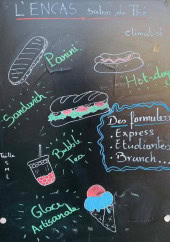 L'ENCAS Salon de Thé
climatisé
Panini
Hot-dog
Sandwich
Des formules
. Express
. Etudiantes
. Brunch...
Bubble
Tea
Taille
M
L
Glace
Artisanale